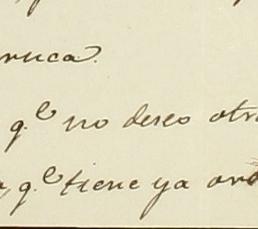 ruca.
q.e no deseo otr
q.e tiene ya ord